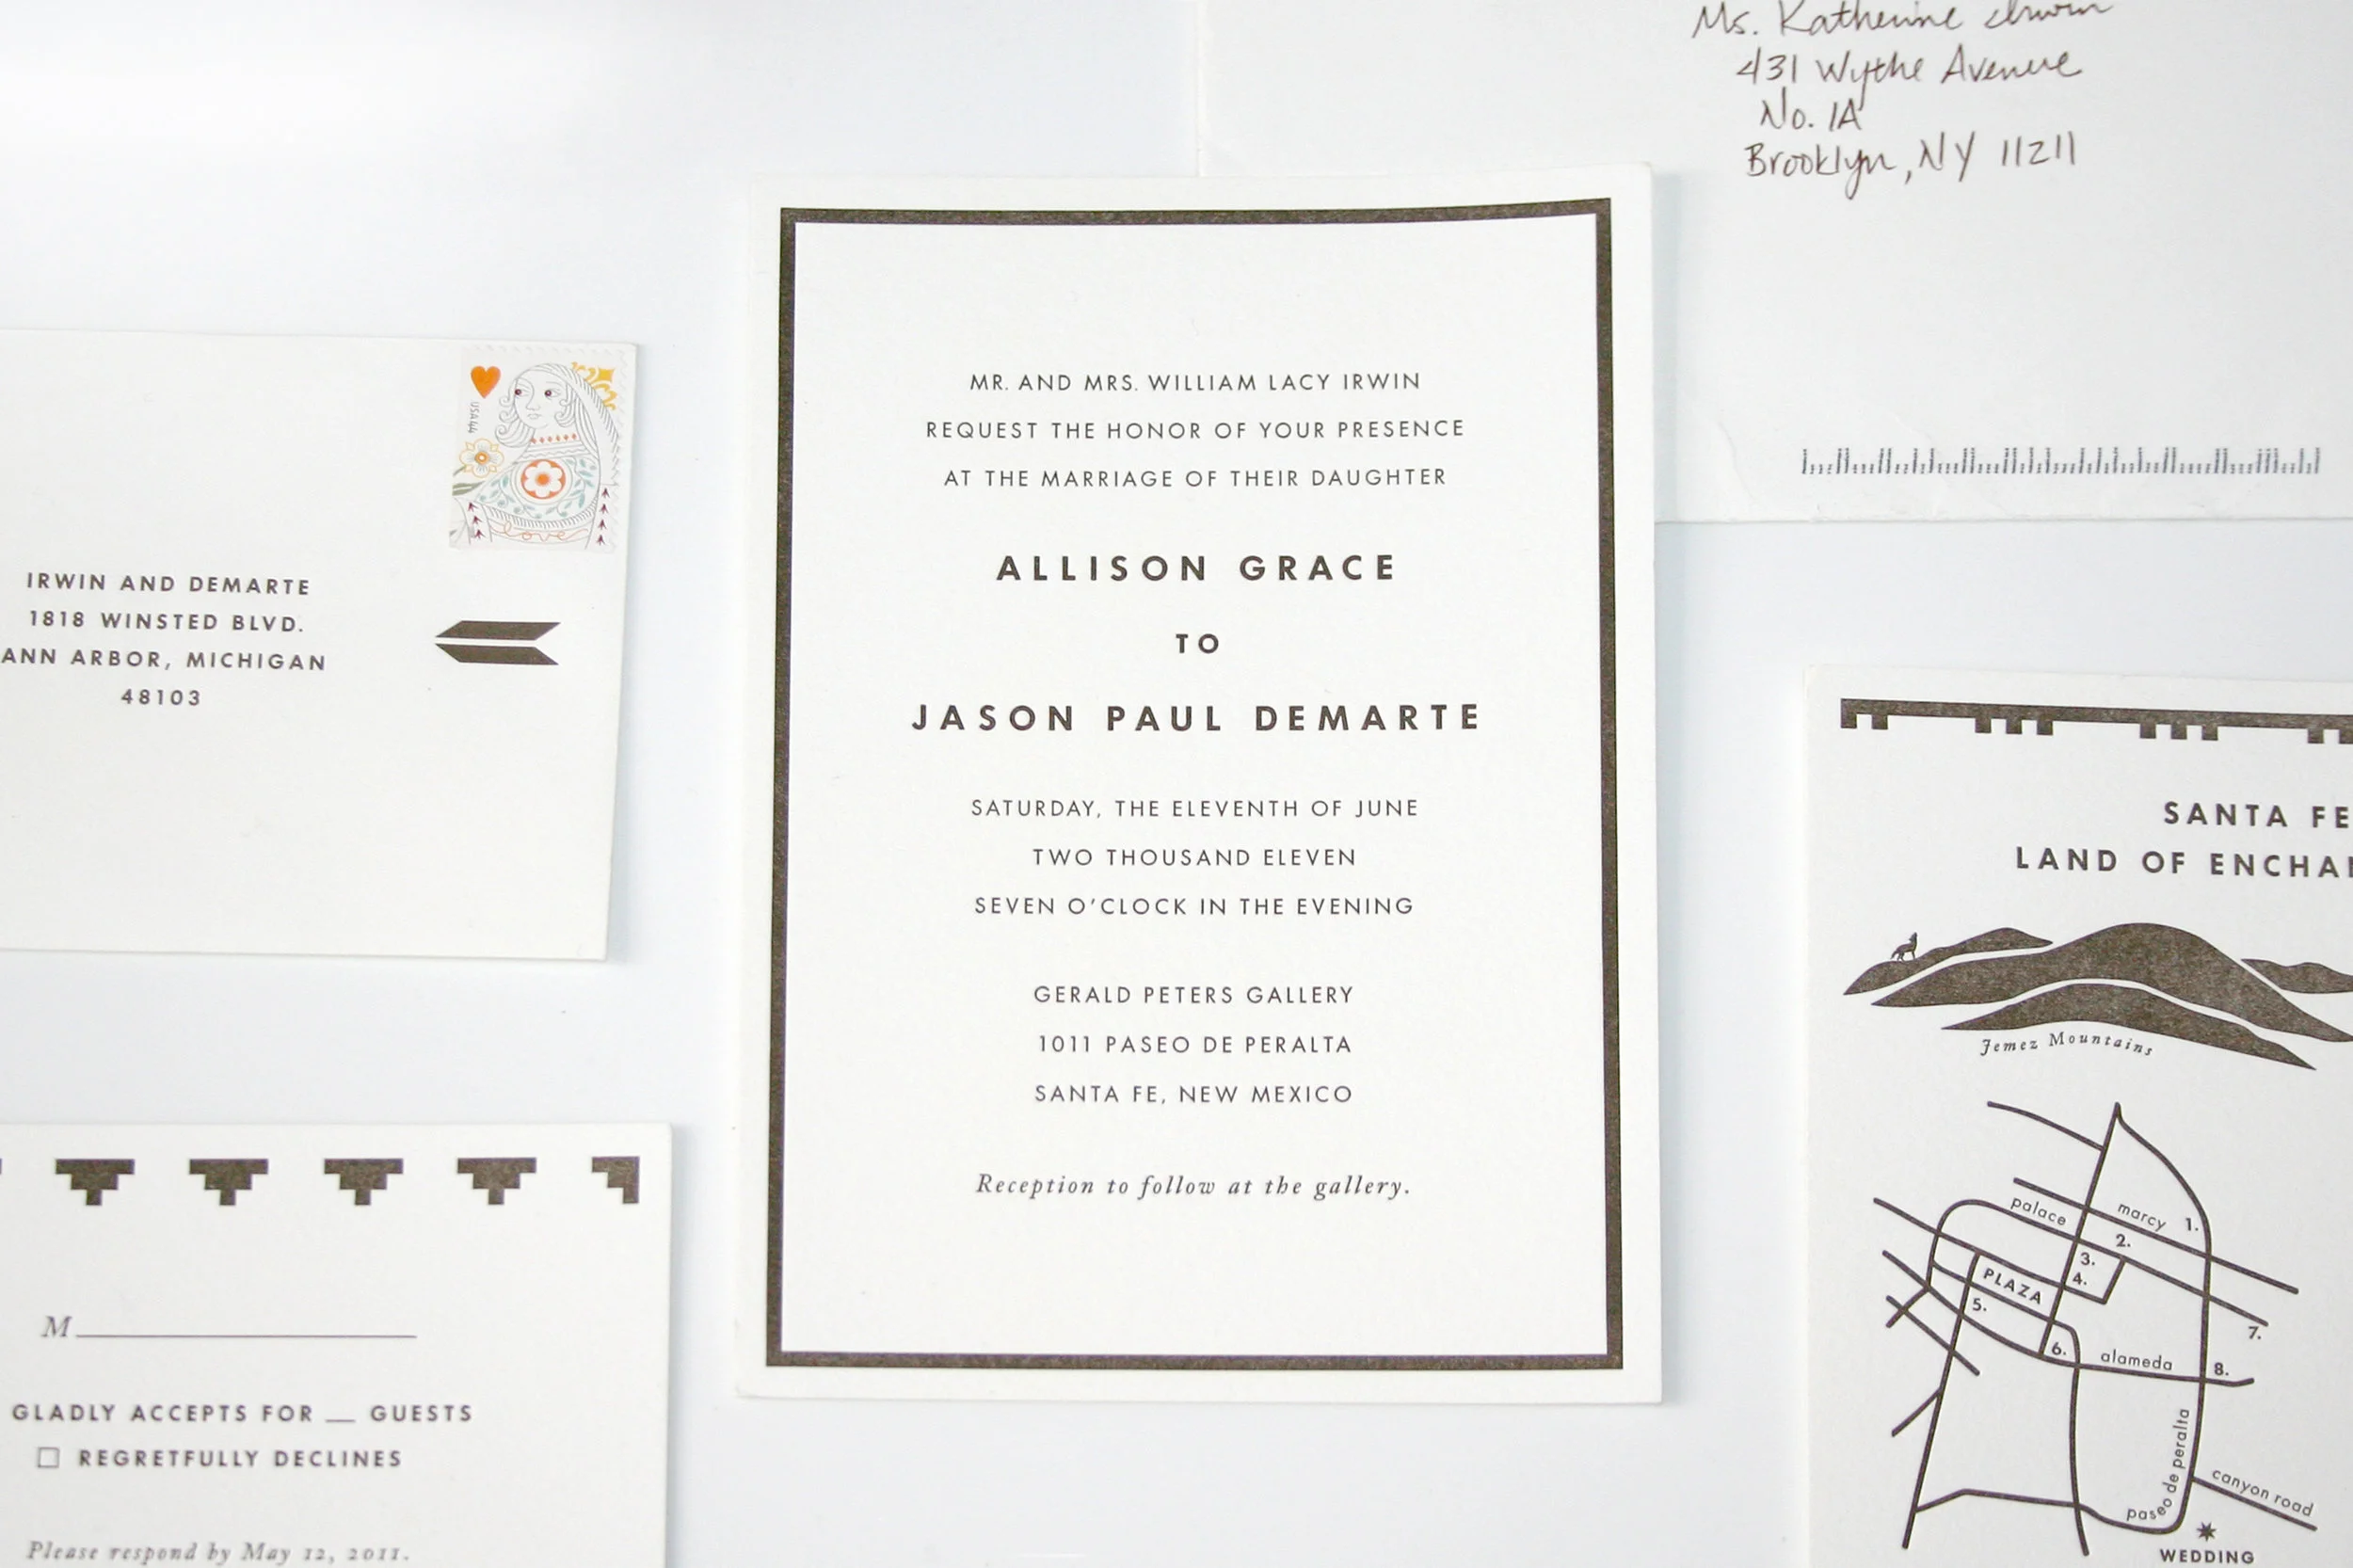 Ms. Katherine Irwin
431 Wythe Avenue
No. 1A
Brooklyn, NY 11211
USA44
love
IRWIN AND DEMARTE
1818 WINSTED BLVD.
ANN ARBOR, MICHIGAN
48103
MR. AND MRS. WILLIAM LACY IRWIN
REQUEST THE HONOR OF YOUR PRESENCE
AT THE MARRIAGE OF THEIR DAUGHTER
ALLISON GRACE
TO
JASON PAUL DEMARTE
SATURDAY, THE ELEVENTH OF JUNE
TWO THOUSAND ELEVEN
SEVEN O'CLOCK IN THE EVENING
GERALD PETERS GALLERY
1011 PASEO DE PERALTA
SANTA FE, NEW MEXICO
Reception to follow at the gallery.
M
GLADLY ACCEPTS FOR __ GUESTS
REGRETFULLY DECLINES
Please respond by May 12, 2011.
SANTA FE
LAND OF ENCHA
Jemez Mountains
palace
marcy
1.
2.
3.
4.
PLAZA
5.
6.
7.
alameda
8.
paseo de peralta
canyon road
WEDDING